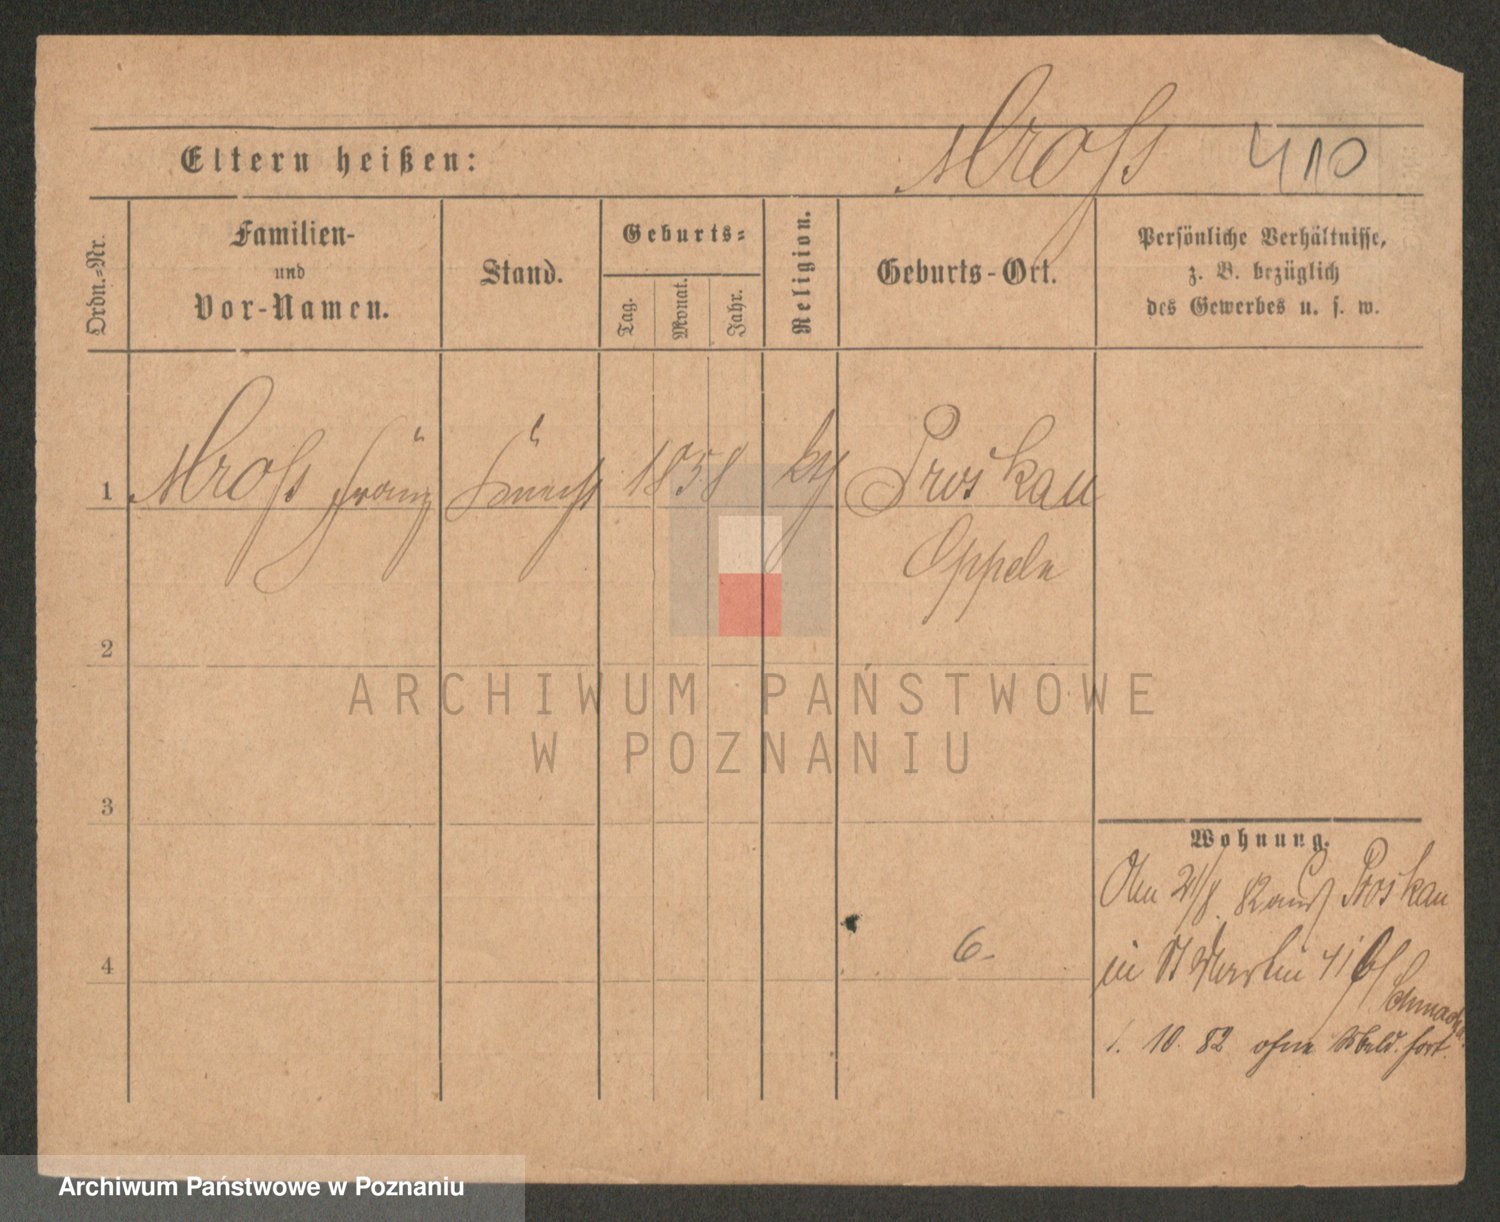 Eltern heißen: Mross 410
Ordn.-Nr.
Familien-
und
Vor-Namen.
Stand.
Geburts-
Tag.
Monat.
Jahr.
Religion.
Geburts-Ort.
Persönliche Verhältnisse,
z. B. bezüglich
des Gewerbes u. s. w.
1 Mross Franz Knecht 1858 Proskau
Oppeln
2
ARCHIWUM PAŃSTWOWE
W POZNANIU
3
Wohnung.
21/8. 82 Proskau
4
6
in St Martin 41
1. 10. 82 ohne Meld. fort.
Archiwum Państwowe w Poznaniu